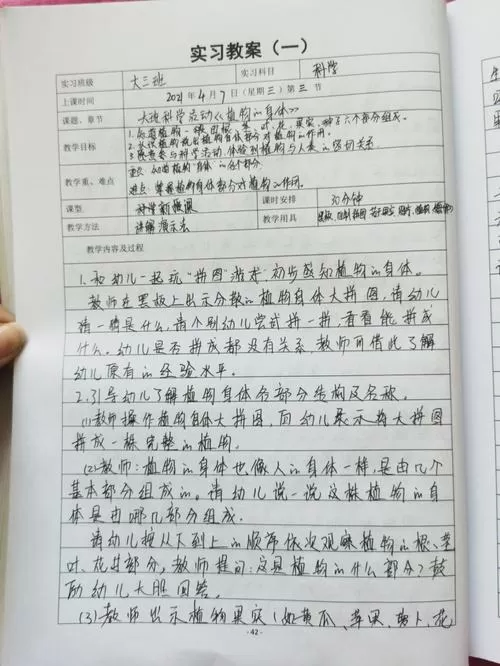 实习教案（一）
实习班级 大三班 实习科目 科学
上课时间 2021年4月7日（星期三）第三节
课题、章节 大班科学活动《植物的身体》
教学目标 1.知道植物一般由根、茎、叶、花、果实、种子六个部分组成。
2.认识植物说出植物身体部分对植物的作用。
3.愿意参与科学活动，体验到植物与人类的密切关系。
教学重、难点 重点：知道植物身体的各个部分。
难点：掌握植物身体部分对植物的作用。
课型 科学新授课 课时安排 30分钟
教学方法 讲解演示法 教学用具
教学内容及过程
1.和幼儿一起玩"拼图"游戏，初步感知植物的身体。
教师在黑板上出示分散的植物身体大拼图，请幼儿
猜一猜是什么，请个别幼儿尝试拼一拼，看看能拼成
什么。幼儿是否拼成都没有关系，教师可借此了解
幼儿原有的经验水平。
2.引导幼儿了解植物身体各部分结构及名称。
(1)教师操作植物身体大拼图，向幼儿展示将大拼图
拼成一株完整的植物。
(2)教师：植物的身体也像人的身体一样，是由几个
基本部分组成的。请幼儿说一说这株植物的身
体是由哪几部分组成。
请幼儿按从下到上的顺序依次观察植物的根、茎、
叶、花等部分，教师提问：这是植物的什么部分？鼓
励幼儿大胆回答。
(3)教师出示植物果实（如黄瓜、苹果、萝卜、花
- 42 -